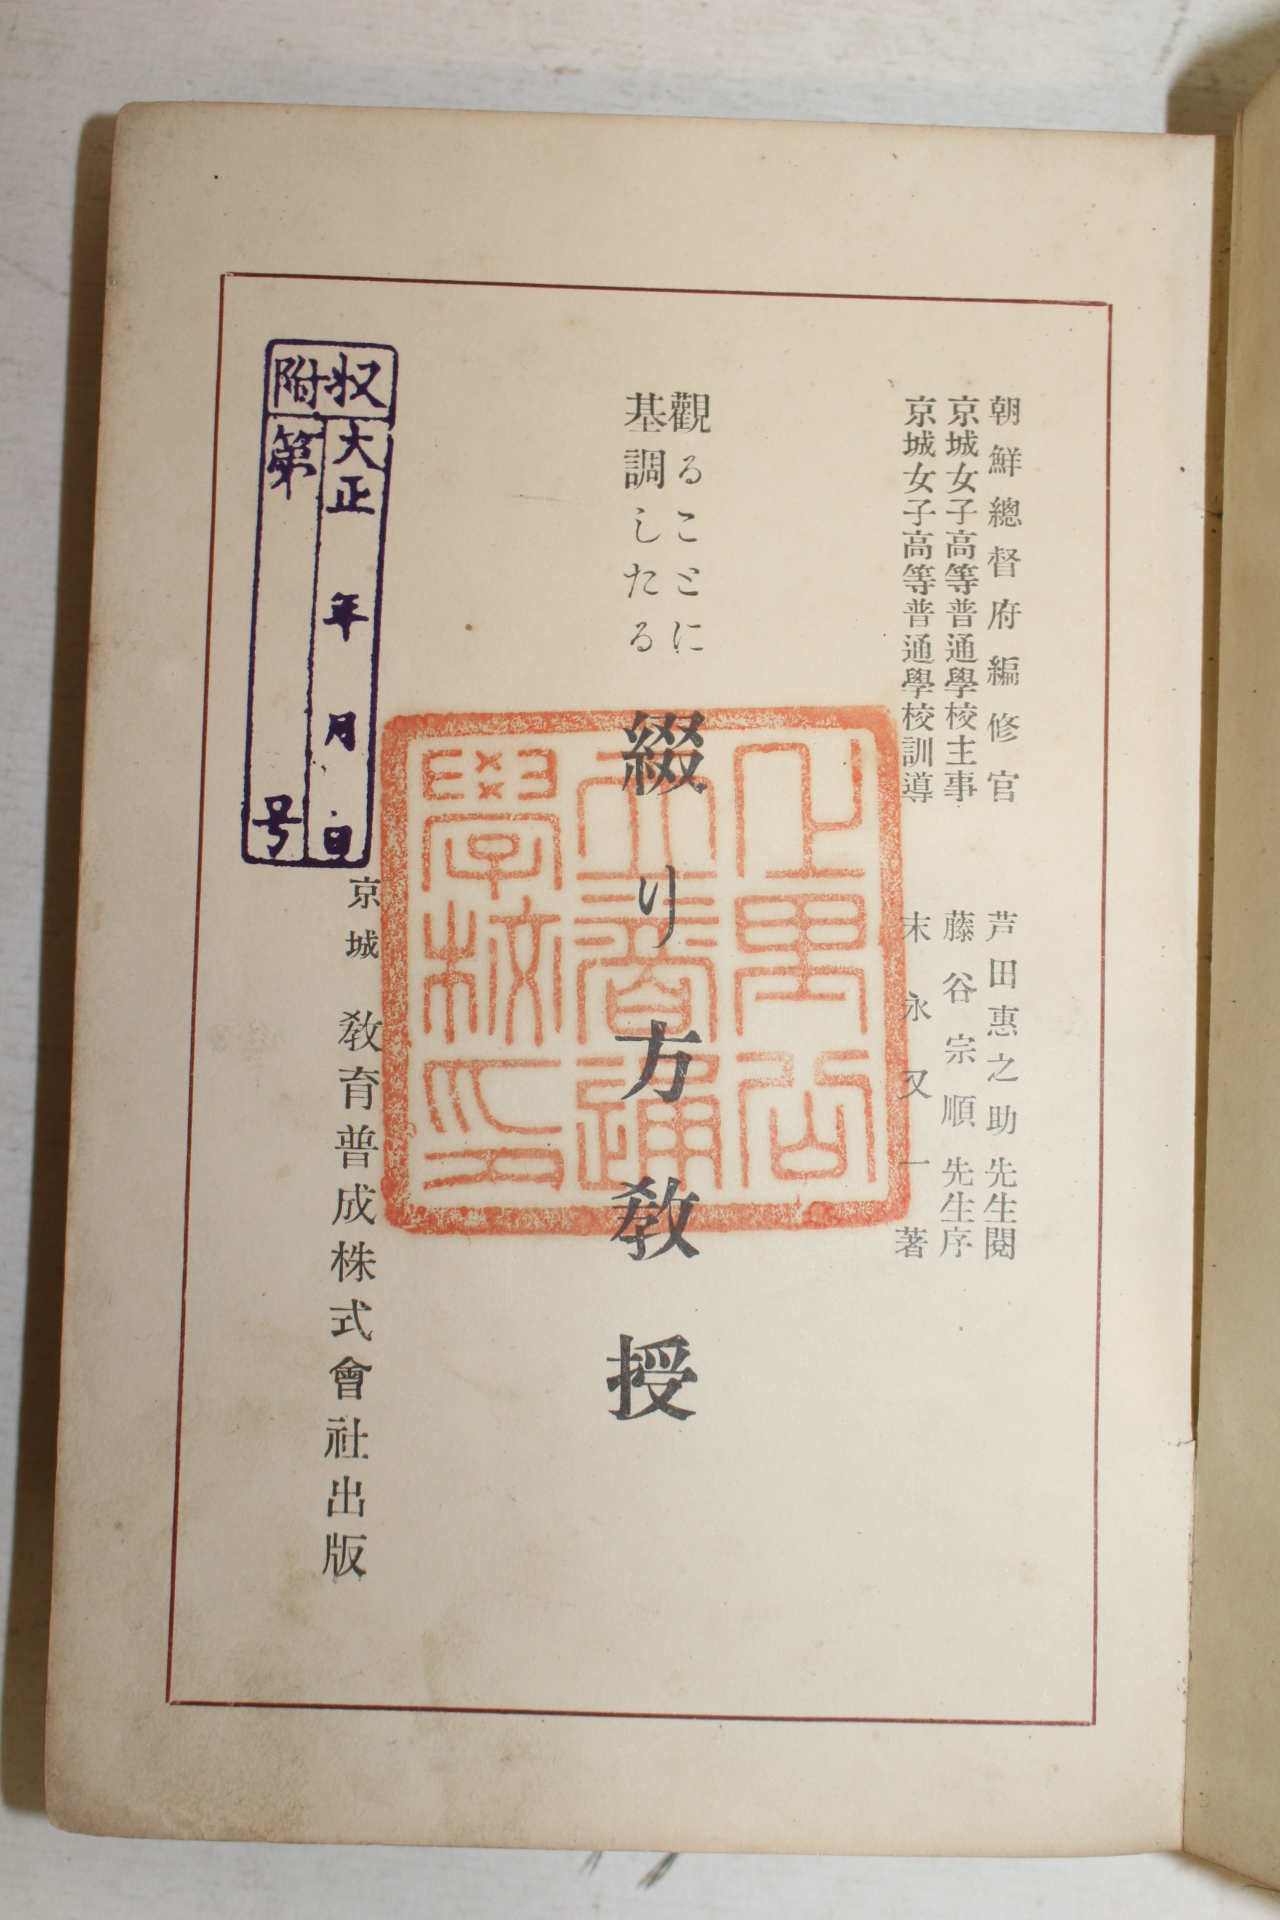 朝鮮總督府編修官 芦田惠之助先生閱
京城女子高等普通學校主事 藤谷宗順先生序
京城女子高等普通學校訓導 末永又一著
觀ることに
基調したる
綴り方教授
京城 教育普成株式會社出版
収附
大正 年 月 日
第 号
公立普通
學校印